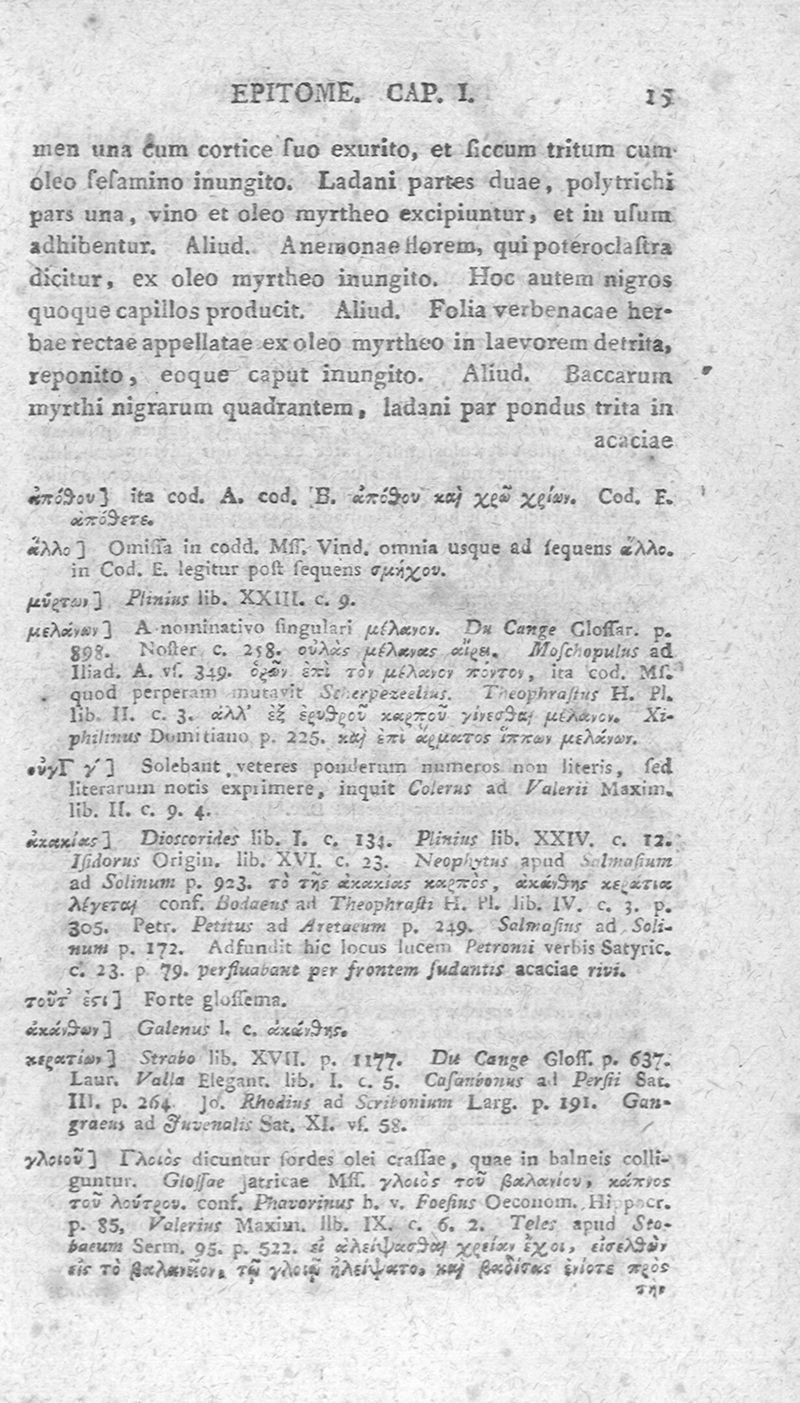 EPITOME. CAP. I. 15
men una cum cortice ſuo exurito, et ſiccum tritum cum
oleo ſeſamino inungito. Ladani partes duae, polytrichi
pars una, vino et oleo myrtheo excipiuntur, et in uſum
adhibentur. Aliud. Anemonae florem, qui poteroclaſtra
dicitur, ex oleo myrtheo inungito. Hoc autem nigros
quoque capillos producit. Aliud. Folia verbenacae her-
bae rectae appellatae ex oleo myrtheo in laevorem detrita,
reponito, eoque caput inungito. Aliud. Baccarum
myrthi nigrarum quadrantem, ladani par pondus trita in
acaciae
ἀπόθου] ita cod. A. cod. B. ἀπόθου καὶ χρῶ χρίων. Cod. E.
ἀπόθετε.
ἄλλο] Omiſſa in codd. Mſſ. Vind. omnia usque ad ſequens ἄλλο.
in Cod. E. legitur poſt ſequens σμήχου.
μύρτων] Plinius lib. XXIII. c. 9.
μελάνων] A nominativo ſingulari μέλανον. Du Cange Gloſſar. p.
898. Noſter c. 258. οὐλὰς μέλανας αἴρει. Moſchopulus ad
Iliad. A. vſ. 349. ὁρῶν ἐπὶ τὸν μέλανον πόντον, ita cod. Mſ.
quod perperam mutavit Scherpezeelius. Theophraſtus H. Pl.
lib. II. c. 3. ἀλλ' ἐξ ἐρυθροῦ καρποῦ γίνεσθαι μέλανον. Xi-
philinus Domitiano p. 225. καὶ ἐπὶ ἅρματος ἵππων μελάνων.
οὐγΓ γ'] Solebant veteres ponderum numeros non literis, ſed
literarum notis exprimere, inquit Colerus ad Valerii Maxim.
lib. II. c. 9. 4.
ἀκακίας] Dioscorides lib. I. c. 134. Plinius lib. XXIV. c. 12.
Iſidorus Origin. lib. XVI. c. 23. Neophytus apud Salmaſium
ad Solinum p. 923. τὸ τῆς ἀκακίας καρπὸς, ἀκάνθης κεράτια
λέγεται conf. Bodaeus ad Theophraſti H. Pl. lib. IV. c. 3. p.
305. Petr. Petitus ad Aretaeum p. 249. Salmaſius ad Soli-
num p. 172. Adfundit hic locus lucem Petronii verbis Satyric.
c. 23. p 79. perfluabant per frontem ſudantis acaciae rivi.
τοῦτ' ἐστι] Forte gloſſema.
ἀκάνθων] Galenus l. c. ἀκάνθης.
κερατίων] Strabo lib. XVII. p. 1177. Du Cange Gloſſ. p. 637.
Laur. Valla Elegant. lib. I. c. 5. Caſaubonus ad Perſii Sat.
III. p. 264. Jo. Rhodius ad Scribonium Larg. p. 191. Gan-
graeus ad Juvenalis Sat. XI. vſ. 58.
γλοιοῦ] Γλοιὸς dicuntur ſordes olei craſſae, quae in balneis colli-
guntur. Gloſſae jatricae Mſſ. γλοιὸς τοῦ βαλανίου, κάπνος
τοῦ λούτρου. conf. Phavorinus h. v. Foeſius Oeconom. Hippocr.
p. 85, Valerius Maxim. lib. IX. c. 6. 2. Teles apud Sto-
baeum Serm. 95. p. 522. εἰ ἀλείψασθαι χρείαν ἔχοι, εἰσελθὼν
εἰς τὸ βαλανεῖον, τῷ γλοιῷ ἠλείψατο, καὶ βαδίσας ἐνίοτε πρὸς
τὴν